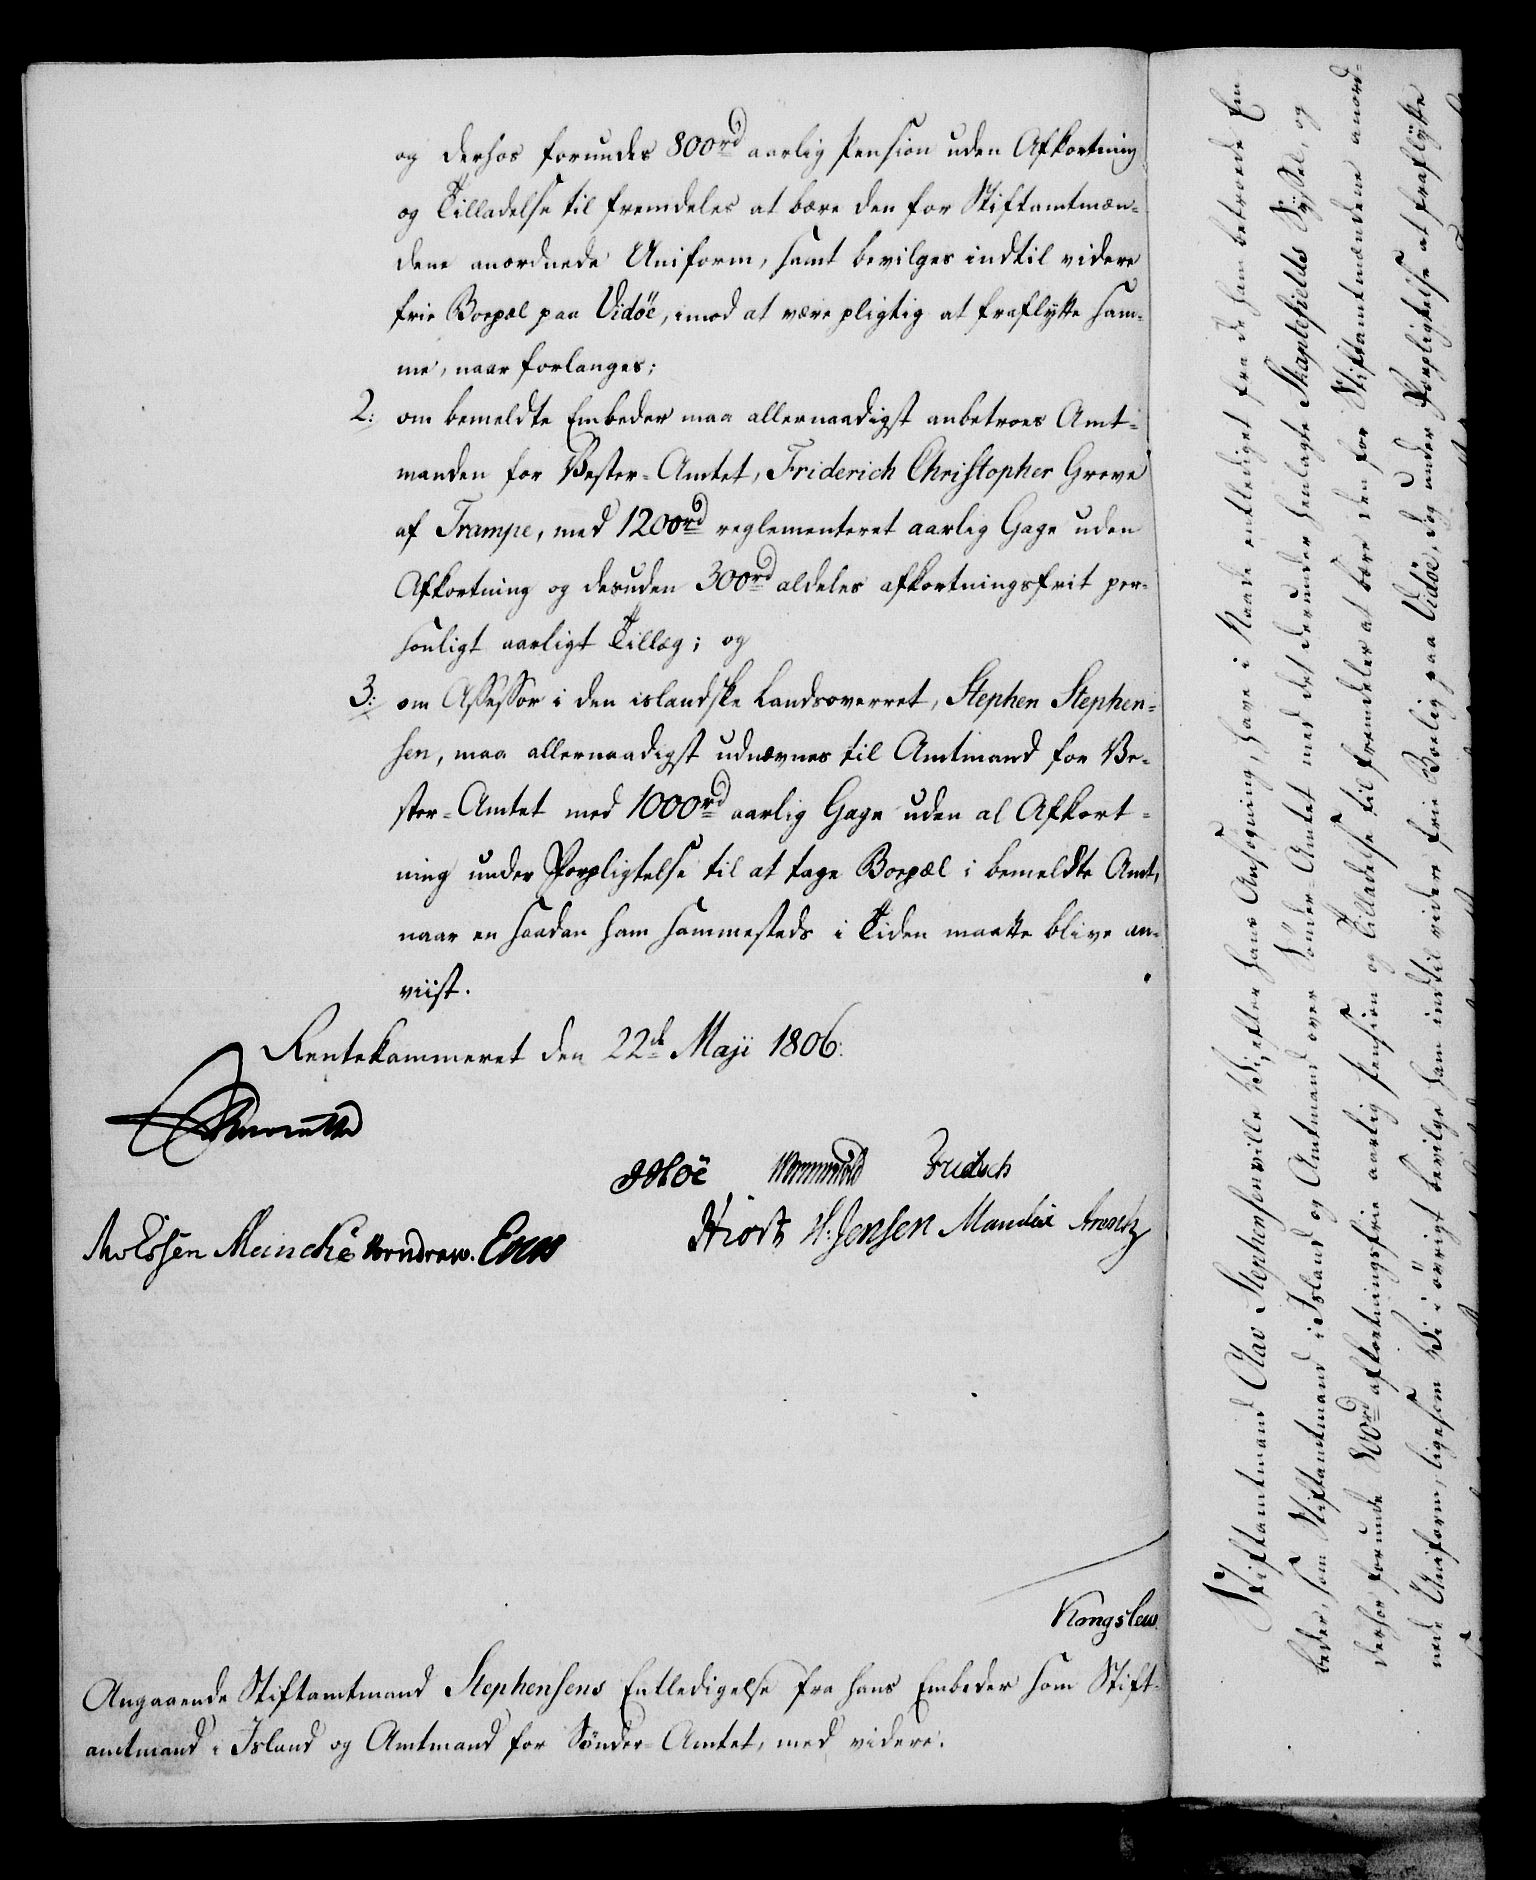 og derhos forundes 800rd aarlig Pension uden Afkortning
og Tilladelse til fremdeles at bære den for Stiftamtmæn-
dene anordnede Uniform, samt bevilges indtil videre
frie Boepæl paa Vidöe, imod at være pligtig at fraflytte sam-
me, naar forlanges;
2: om bemeldte Embeder maa allernaadigst anbetroes Amt-
manden for Vester-Amtet, Friderich Christopher Greve
af Trampe, med 1200rd reglementeret aarlig Gage uden
Afkortning og desuden 300rd aldeles afkortningsfrit per-
sonligt aarligt Tillæg; og
3: om Assessor i den islandske Landsoverret, Stephen Stephen-
sen, maa allernaadigst udnævnes til Amtmand for Ve-
ster-Amtet med 1000rd aarlig Gage uden al Afkort-
ning under Forpligtelse til at tage Boepæl i bemeldte Amt,
naar en saadan ham sammesteds i Tiden maatte blive an-
viist.
Rentekammeret den 22de Maji 1806:
Wormskiold
Hiort H: Jensen Mandix Arentz
v Essen Meincke
Kongslew
Angaaende Stiftamtmand Stephensens Entledigelse fra hans Embeder som Stift-
amtmand i Island og Amtmand for Sönder-Amtet, med videre.
Stiftamtmand Olav Stephensen ville Vi, efter hans Ansøgning, have i Naade entlediget fra de ham betroede Em-
beder, som Stiftamtmand i Island og Amtmand over Sönder-Amtet med det derunder henlagte Skaptefields Syssel, og
derhos forunde 800rd afkortningsfrie aarlig Pension og Tilladelse til fremdeles at bære den for Stiftamtmændene anord-
nede Uniform, ligesom Vi i övrigt bevilge ham indtil videre frie Bolig paa Vidöe, dog under Forpligtelse at fraflytte